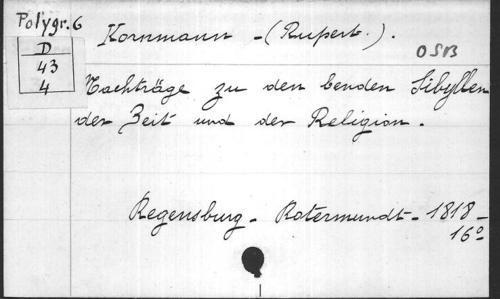 Polygr. 6
D
43
4
Kornmann - (Rupert.).
OSB
Nachträge zu den benden Sibyllen
der Zeit und der Religion.
Regensburg - Rotermundt - 1818 -
16º